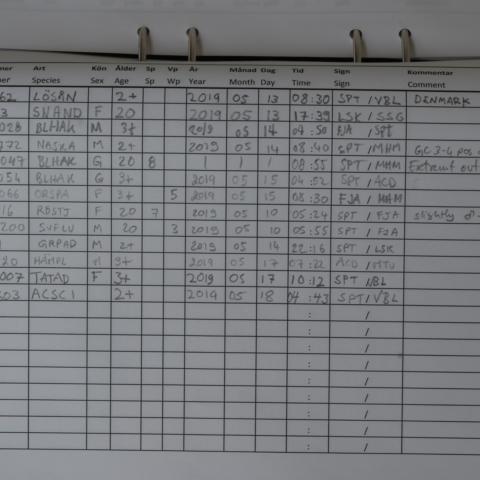 Art Kön Ålder Sp Vp År Månad Dag Tid Sign Kommentar
Species Sex Age Sp Wp Year Month Day Time Sign Comment
62 LÖSÅN 2+ 2019 05 13 08:30 SPT/VBL DENMARK
3 SNAND F 20 2019 05 13 17:39 LSK/SSG
028 BLHAK M 3+ 2019 05 14 04:50 FJA/SPT
772 NASKA M 2+ 2019 05 14 08:40 SPT/MHM GC 3-4 pos
047 BLHAK G 20 8 08:55 SPT/MHM Extremt out
054 BLHAK G 3+ 2019 05 15 04:52 SPT/ACD
066 ORSPA F 5 2019 05 15 08:30 FJA/MHM
16 RÖSTJ F 20 7 2019 05 10 05:24 SPT/FJA slightly
200 SVFLU M 20 3 2019 05 10 05:55 SPT/FJA
GRPAD M 2+ 2019 05 14 22:16 SPT/LSK
20 HÄMPL 3+ 2019 05 17 07:22 ACD/MTU
007 TATAD F 3+ 2019 05 17 10:12 SPT/BL
603 ACSCI 2+ 2019 05 18 04:43 SPT/VBL
: /
: /
: /
: /
: /
: /
: /